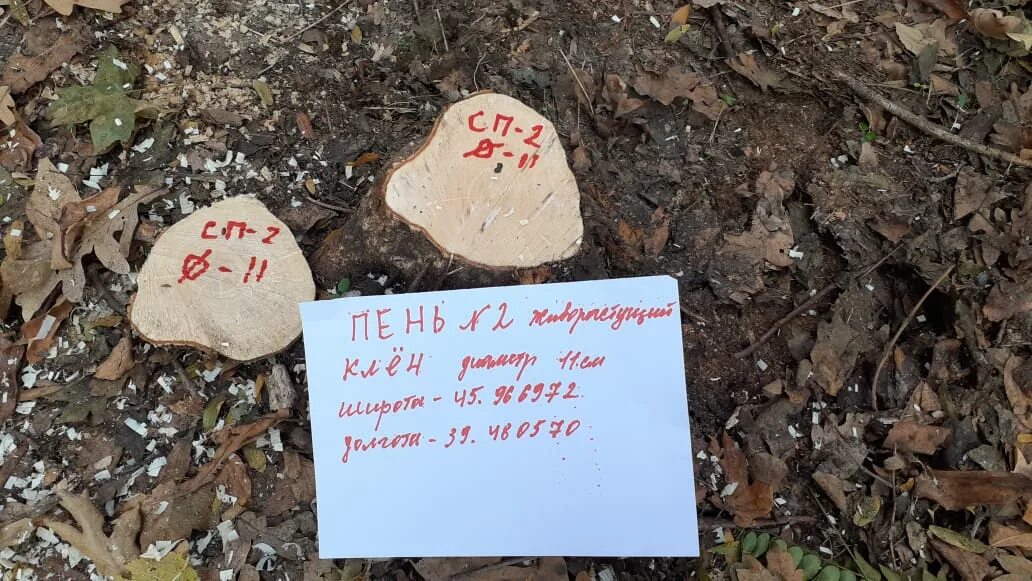 СП-2
Ø-11
СП-2
Ø-11
ПЕНЬ №2 живорастущий
КЛЁН диаметр 11 см
широта - 45.966972
долгота - 39.480570